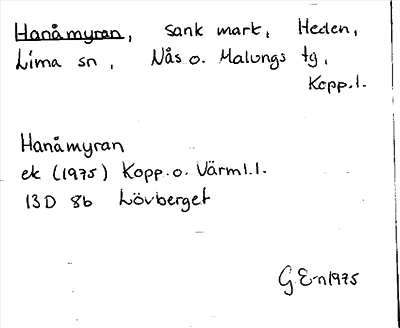 Hanåmyran, sank mark, Heden,
Lima sn, Nås o. Malungs tg,
Kopp.l.
Hanåmyran
ek (1975) Kopp. o. Värml.l.
13D 8b Lövberget
G E-n 1975